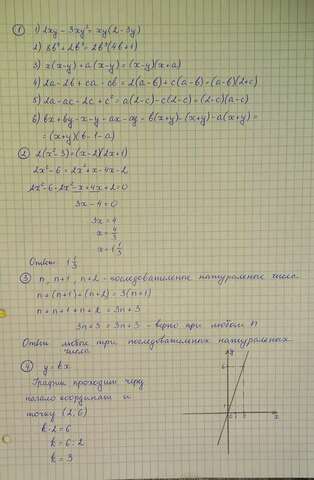 ① 1) 2xy - 3xy² = xy(2 - 3y)
2) 8b⁴ + 2b³ = 2b³(4b + 1)
3) x(x-y) + a(x-y) = (x-y)(x+a)
4) 2a - 2b + ca - cb = 2(a-b) + c(a-b) = (a-b)(2+c)
5) 2a - ac - 2c + c² = a(2-c) - c(2-c) = (2-c)(a-c)
6) bx + by - x - y - ax - ay = b(x+y) - (x+y) - a(x+y) =
= (x+y)(b-1-a)
② 2(x²-3) = (x-2)(2x+1)
2x² - 6 = 2x² + x - 4x - 2
2x² - 6 - 2x² - x + 4x + 2 = 0
3x - 4 = 0
3x = 4
x = 4/3
x = 1 1/3
Ответ: 1 1/3
③ n, n+1, n+2 - последовательные натуральные числа
n + (n+1) + (n+2) = 3(n+1)
n + n+1 + n+2 = 3n+3
3n+3 = 3n+3 - верно при любом n
Ответ любые три последовательных натуральных
числа
④ y = kx
График проходит через
начало координат и
точку (2, 6)
k·2 = 6
k = 6 : 2
k = 3
y
6
x